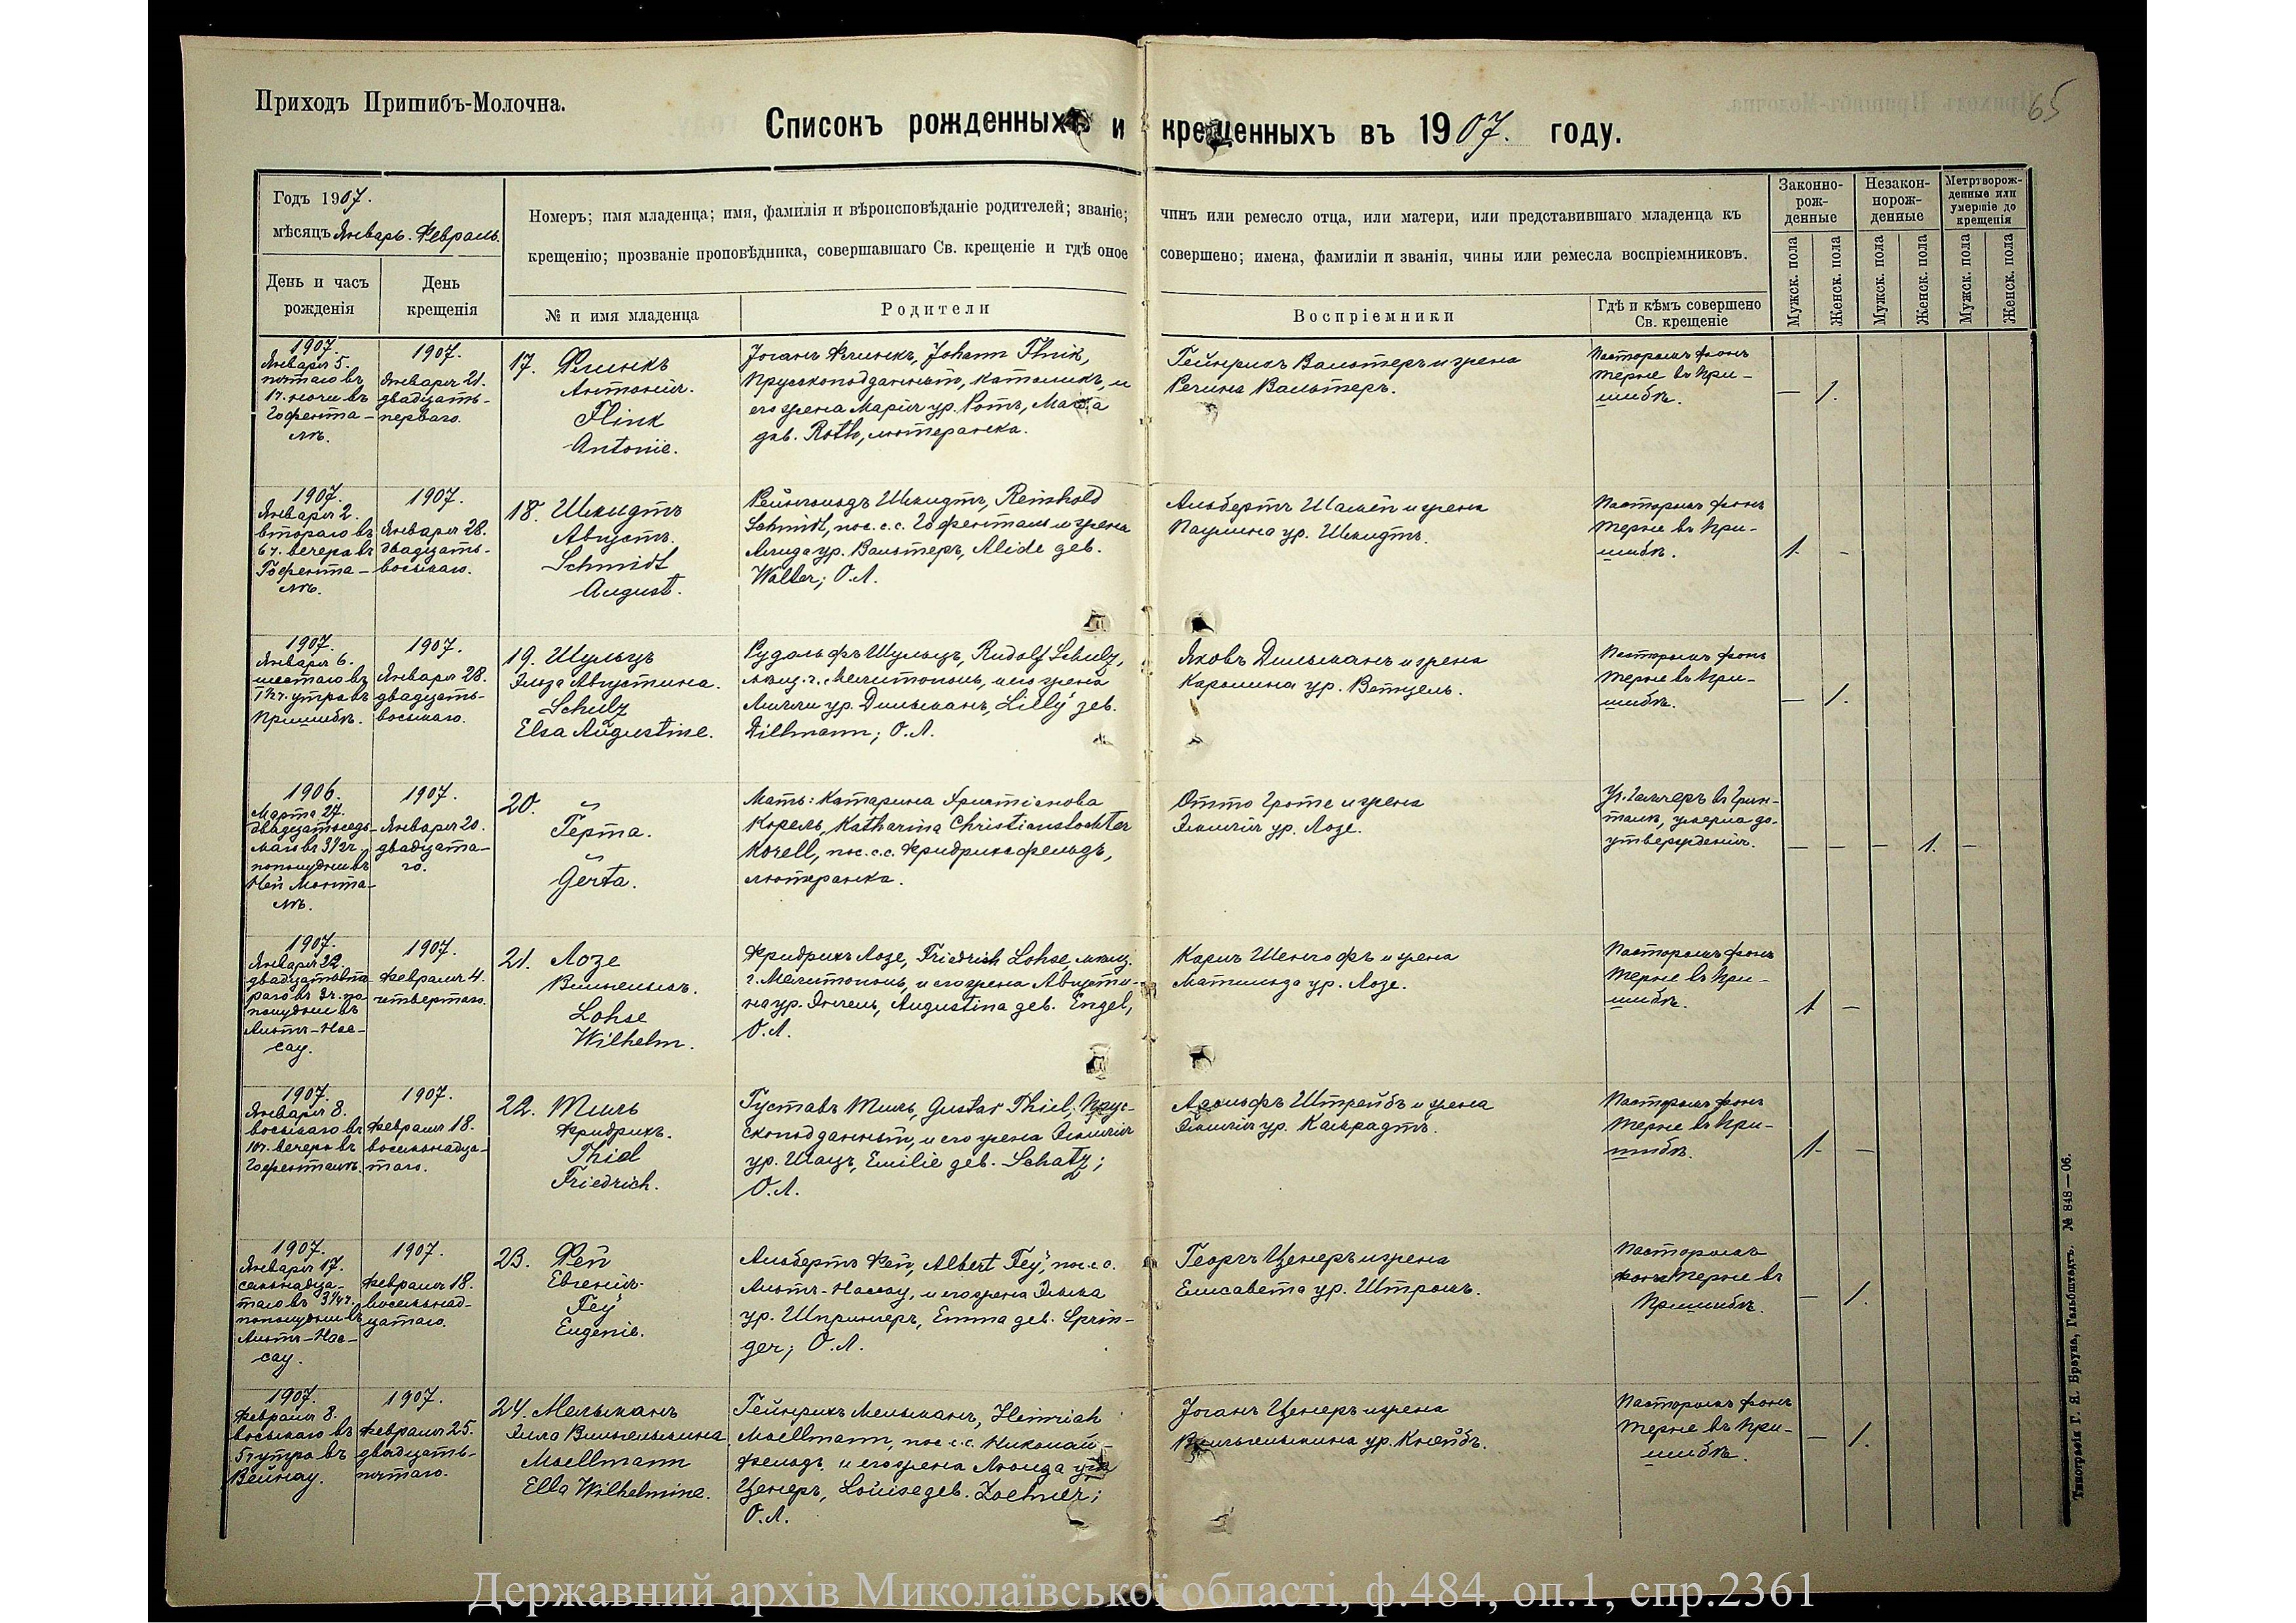 Приходъ Пришибъ-Молочна.
65
Списокъ рожденныхъ и крещенныхъ въ 1907. году.
Годъ 1907.
мѣсяцъ Январь. Февраль.
День и часъ
рожденія
День
крещенія
Номеръ; имя младенца; имя, фамилія и вѣроисповѣданіе родителей; званіе; чинъ или ремесло отца, или матери, или представившаго младенца къ
крещенію; прозваніе проповѣдника, совершавшаго Св. крещеніе и гдѣ оное совершено; имена, фамиліи и званія, чины или ремесла воспріемниковъ.
№ и имя младенца
Родители
Воспріемники
Гдѣ и кѣмъ совершено
Св. крещеніе
Законно-
рож-
денные
Незакон-
норож-
денные
Метртворож-
денные или
умершіе до
крещенія
Мужск. пола
Женск. пола
Мужск. пола
Женск. пола
Мужск. пола
Женск. пола
1907.
Января 5.
пятаго въ
ночи въ
Гофента-
лѣ.
1907.
Января 21.
двадцать-
перваго.
17. Флинкъ
Антонія.
Flink
Antonie.
Іоганъ Флинкъ, Johann Flink,
Прусскоподданный, католикъ, и
его жена Марія ур. Ротъ,
геб. Roth, лютеранка.
Гейнрихъ Вальтеръ и жена
Регина Вальтеръ.
Пасторомъ фонъ
Терне въ При-
шибѣ.
— 1.
1907.
Января 2.
втораго въ
6 ч. вечера въ
Гофента-
лѣ.
1907.
Января 28.
двадцать-
восьмаго.
18. Шмидтъ
Августъ.
Schmidt
August.
Рейнгольдъ Шмидтъ, Reinhold
Schmidt, пос. с. с. Гофенталь и жена
Алида ур. Вальтеръ, Alide геб.
Walter; О.Л.
Альбертъ Шамей и жена
Паулина ур. Шмидтъ.
Пасторомъ фонъ
Терне въ При-
шибѣ.
1 -
1907.
Января 6.
шестаго въ
утра въ
Пришибѣ.
1907.
Января 28.
двадцать-
восьмаго.
19. Шульцъ
Эльза Августина.
Schulz
Elsa Augustine.
Рудольфъ Шульцъ, Rudolf Schulz,
мѣщ. г. Мелитополь, и его жена
Лилли ур. Дильманъ, Lilly геб.
Dillmann; О.Л.
Яковъ Дильманъ и жена
Каролина ур. Ветцель.
Пасторомъ фонъ
Терне въ При-
шибѣ.
— 1.
1906.
Марта 27.
двадцатьседь-
маго въ 3 1/2 ч.
пополудни въ
Ней Монта-
лѣ.
1907.
Января 20.
двадцата-
го.
20.
Герта.
Gerta.
Мать: Катарина Христіанова
Корель, Katharina Christianstochter
Korell, пос. с. с. Фридрихсфельдъ,
лютеранка.
Отто Гроте и жена
Эмилія ур. Лозе.
въ Грин-
талѣ, умерла до
утвержденія.
— — — 1. —
1907.
Января 22.
двадцатьвто-
раго въ 3 ч. по
полудни въ
Альтъ-Нас-
сау.
1907.
Февраля 4.
четвертаго.
21. Лозе
Вильгельмъ.
Lohse
Wilhelm.
Фридрихъ Лозе, Friedrich Lohse, мѣщ.
г. Мелитополь, и его жена Августи-
на ур. Энгель, Augustina геб. Engel,
О.Л.
Карлъ Шенгофъ и жена
Матильда ур. Лозе.
Пасторомъ фонъ
Терне въ При-
шибѣ.
1 —
1907.
Января 8.
восьмаго въ
10 ч. вечера въ
Гофенталѣ.
1907.
Февраля 18.
восемьнадца-
таго.
22. Тиль
Фридрихъ.
Thiel
Friedrich.
Густавъ Тиль, Gustav Thiel, Прус-
скоподданный, и его жена Эмилія
ур. Шацъ, Emilie геб. Schatz;
О.Л.
Адольфъ Штрейбъ и жена
Эмилія ур. Камрадтъ.
Пасторомъ фонъ
Терне въ При-
шибѣ.
1 —
1907.
Января 17.
семьнадца-
таго въ 3 1/4 ч.
пополудни въ
Альтъ-Нас-
сау.
1907.
Февраля 18.
восемьнад-
цатаго.
23. Фей
Евгенія.
Fey
Eugenie.
Альбертъ Фей, Albert Fey, пос. с.
Альтъ-Нассау, и его жена Эмма
ур. Шпрингеръ, Emma геб. Sprin-
ger; О.Л.
Георгъ Ценеръ и жена
Елисавета ур. Штромъ.
Пасторомъ
фонъ Терне въ
Пришибѣ.
— 1.
1907.
Февраля 8.
восьмаго въ
утра въ
Вейнау.
1907.
Февраля 25.
двадцать-
пятаго.
24. Мельманъ
Элла Вильгельмина.
Moellmann
Ella Wilhelmine.
Гейнрихъ Мельманъ, Heinrich
Moellmann, пос. с. с. Николай-
фельдъ, и его жена Луиза ур.
Ценеръ, Louise геб. Zoehner;
О.Л.
Іоганъ Ценеръ и жена
Вильгельмина ур. Кнейбъ.
Пасторомъ фонъ
Терне въ При-
шибѣ.
— 1.
Типографія Г. Я. Брауна, Гальбштадтъ. № 848—06.
Державний архів Миколаївської області, ф.484, оп.1, спр.2361